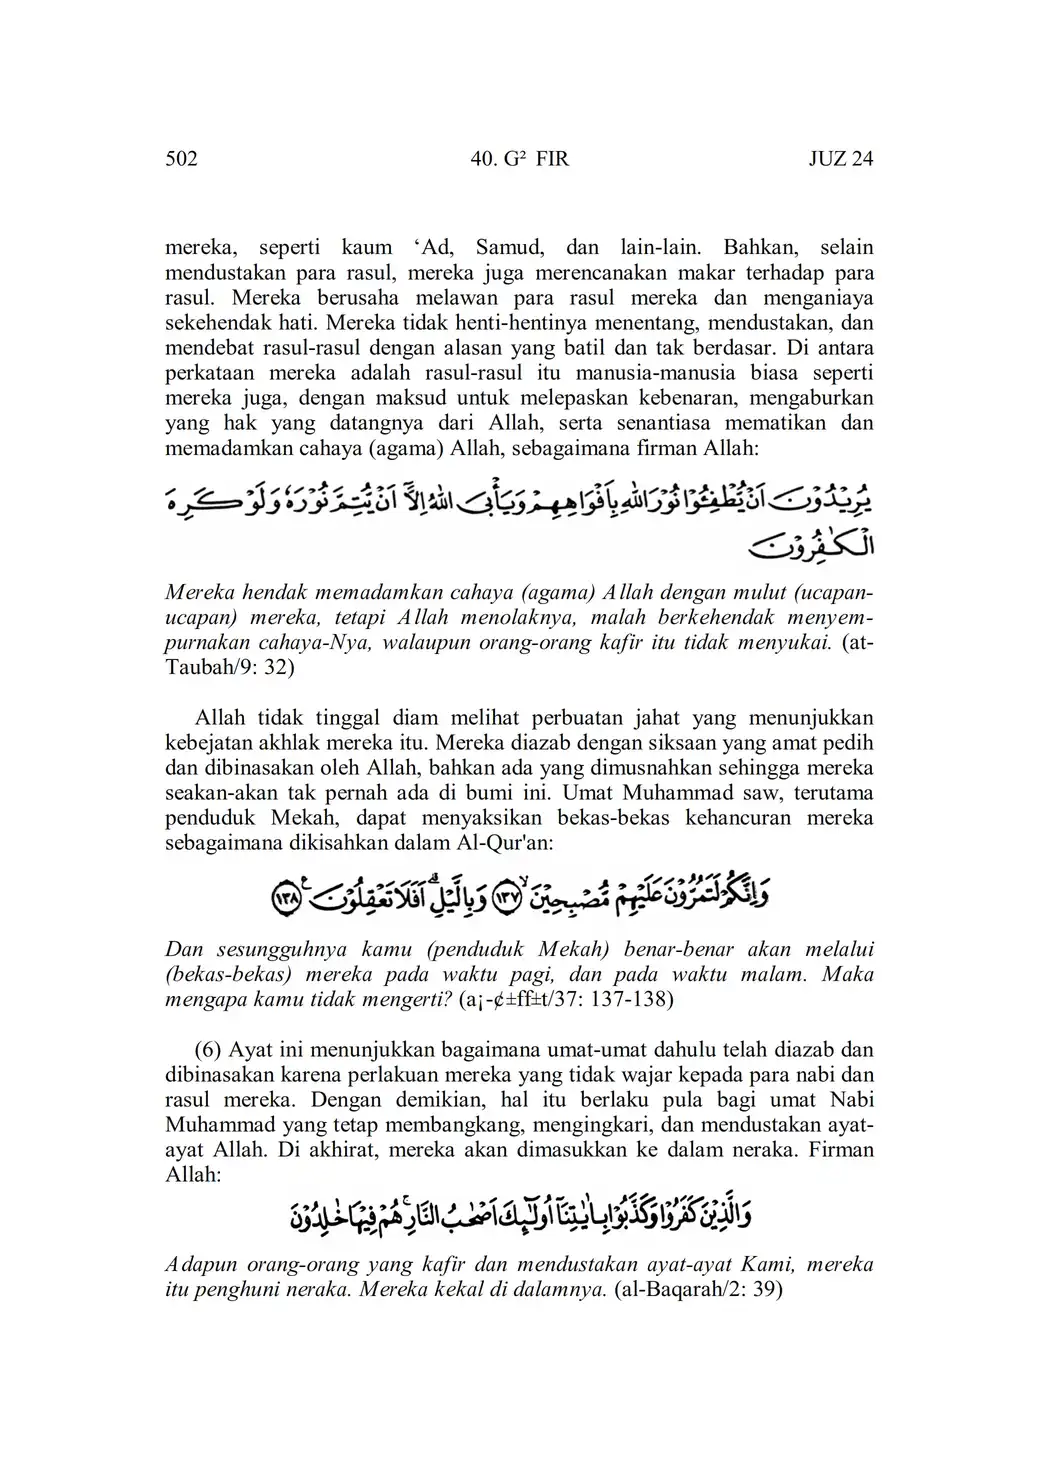 502 40. G² FIR JUZ 24
mereka, seperti kaum ‘Ad, Samud, dan lain-lain. Bahkan, selain
mendustakan para rasul, mereka juga merencanakan makar terhadap para
rasul. Mereka berusaha melawan para rasul mereka dan menganiaya
sekehendak hati. Mereka tidak henti-hentinya menentang, mendustakan, dan
mendebat rasul-rasul dengan alasan yang batil dan tak berdasar. Di antara
perkataan mereka adalah rasul-rasul itu manusia-manusia biasa seperti
mereka juga, dengan maksud untuk melepaskan kebenaran, mengaburkan
yang hak yang datangnya dari Allah, serta senantiasa mematikan dan
memadamkan cahaya (agama) Allah, sebagaimana firman Allah:
يُرِيْدُوْنَ اَنْ يُّطْفِـُٔوْا نُوْرَ اللّٰهِ بِاَفْوَاهِهِمْ وَيَأْبَى اللّٰهُ اِلَّآ اَنْ يُّتِمَّ نُوْرَهٗ وَلَوْ كَرِهَ
الْكٰفِرُوْنَ
Mereka hendak memadamkan cahaya (agama) Allah dengan mulut (ucapan-
ucapan) mereka, tetapi Allah menolaknya, malah berkehendak menyem-
purnakan cahaya-Nya, walaupun orang-orang kafir itu tidak menyukai. (at-
Taubah/9: 32)
Allah tidak tinggal diam melihat perbuatan jahat yang menunjukkan
kebejatan akhlak mereka itu. Mereka diazab dengan siksaan yang amat pedih
dan dibinasakan oleh Allah, bahkan ada yang dimusnahkan sehingga mereka
seakan-akan tak pernah ada di bumi ini. Umat Muhammad saw, terutama
penduduk Mekah, dapat menyaksikan bekas-bekas kehancuran mereka
sebagaimana dikisahkan dalam Al-Qur'an:
وَاِنَّكُمْ لَتَمُرُّوْنَ عَلَيْهِمْ مُّصْبِحِيْنَۙ ١٣٧ وَبِالَّيْلِۗ اَفَلَا تَعْقِلُوْنَ ࣖ ١٣٨
Dan sesungguhnya kamu (penduduk Mekah) benar-benar akan melalui
(bekas-bekas) mereka pada waktu pagi, dan pada waktu malam. Maka
mengapa kamu tidak mengerti? (a¡-¢±ff±t/37: 137-138)
(6) Ayat ini menunjukkan bagaimana umat-umat dahulu telah diazab dan
dibinasakan karena perlakuan mereka yang tidak wajar kepada para nabi dan
rasul mereka. Dengan demikian, hal itu berlaku pula bagi umat Nabi
Muhammad yang tetap membangkang, mengingkari, dan mendustakan ayat-
ayat Allah. Di akhirat, mereka akan dimasukkan ke dalam neraka. Firman
Allah:
وَالَّذِيْنَ كَفَرُوْا وَكَذَّبُوْا بِاٰيٰتِنَآ اُولٰۤىِٕكَ اَصْحٰبُ النَّارِۚ هُمْ فِيْهَا خٰلِدُوْنَ
Adapun orang-orang yang kafir dan mendustakan ayat-ayat Kami, mereka
itu penghuni neraka. Mereka kekal di dalamnya. (al-Baqarah/2: 39)